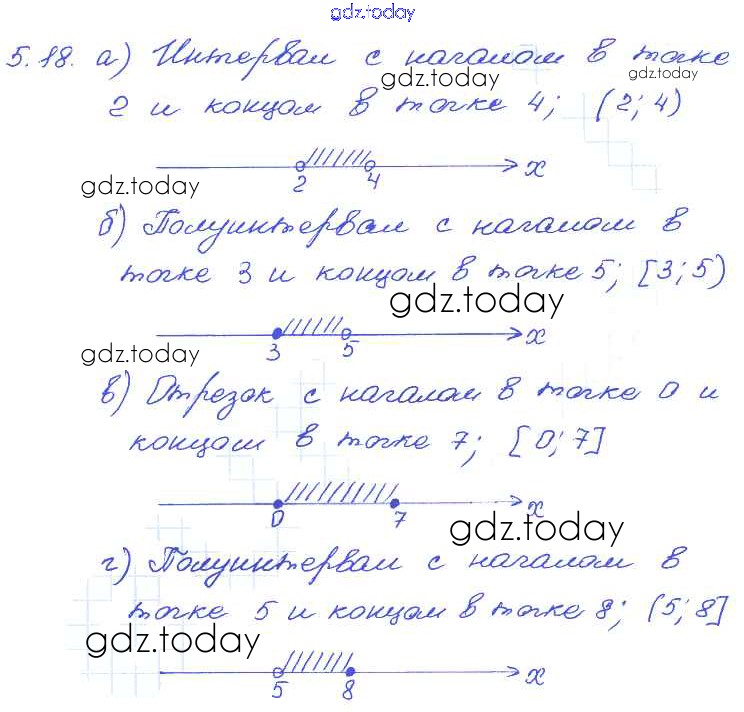 gdz.today
5.18. а) Интервал с началом в точке
gdz.today gdz.today
2 и концом в точке 4; (2; 4)
2 4 x
gdz.today
б) Полуинтервал с началом в
точке 3 и концом в точке 5; [3; 5)
gdz.today
3 5 x
gdz.today
в) Отрезок с началом в точке 0 и
концом в точке 7; [0; 7]
0 7 x
gdz.today
г) Полуинтервал с началом в
точке 5 и концом в точке 8; (5; 8]
gdz.today
5 8 x